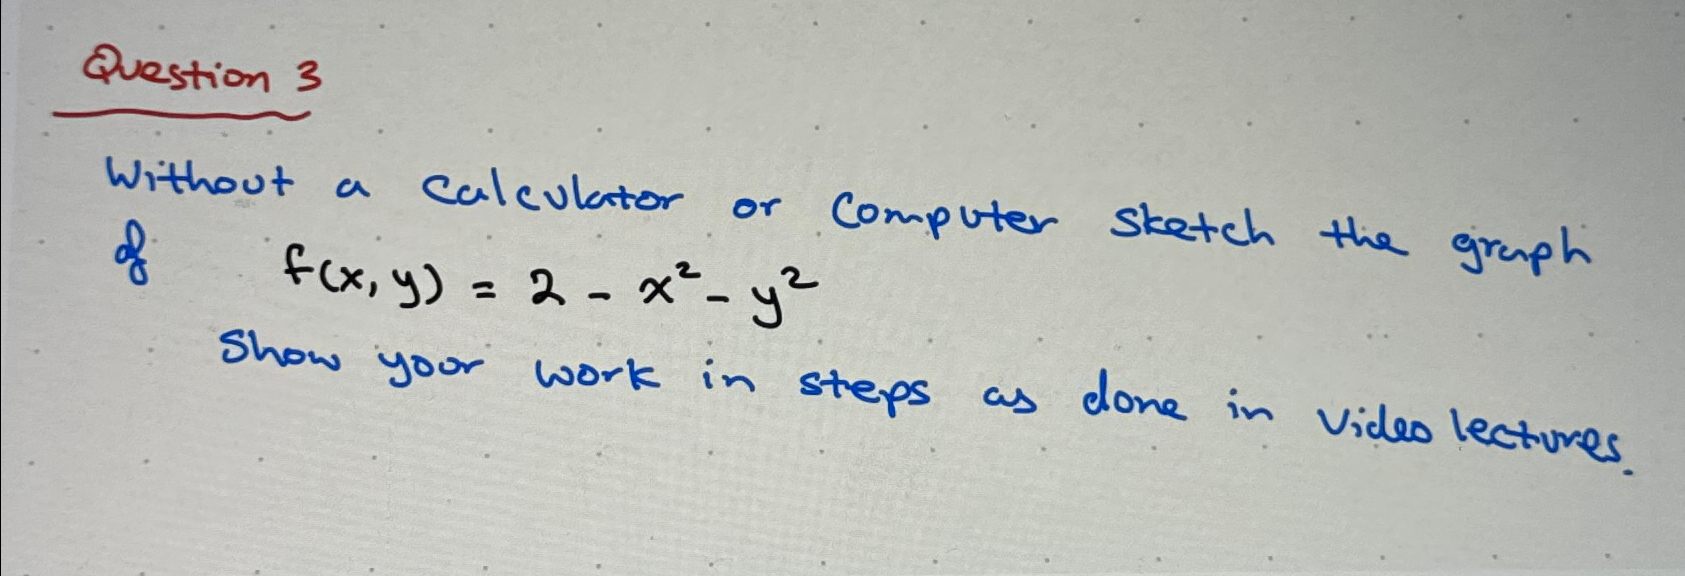 Question 3
Without a calculator or computer sketch the graph
of f(x, y) = 2 - x² - y²
Show your work in steps as done in video lectures.